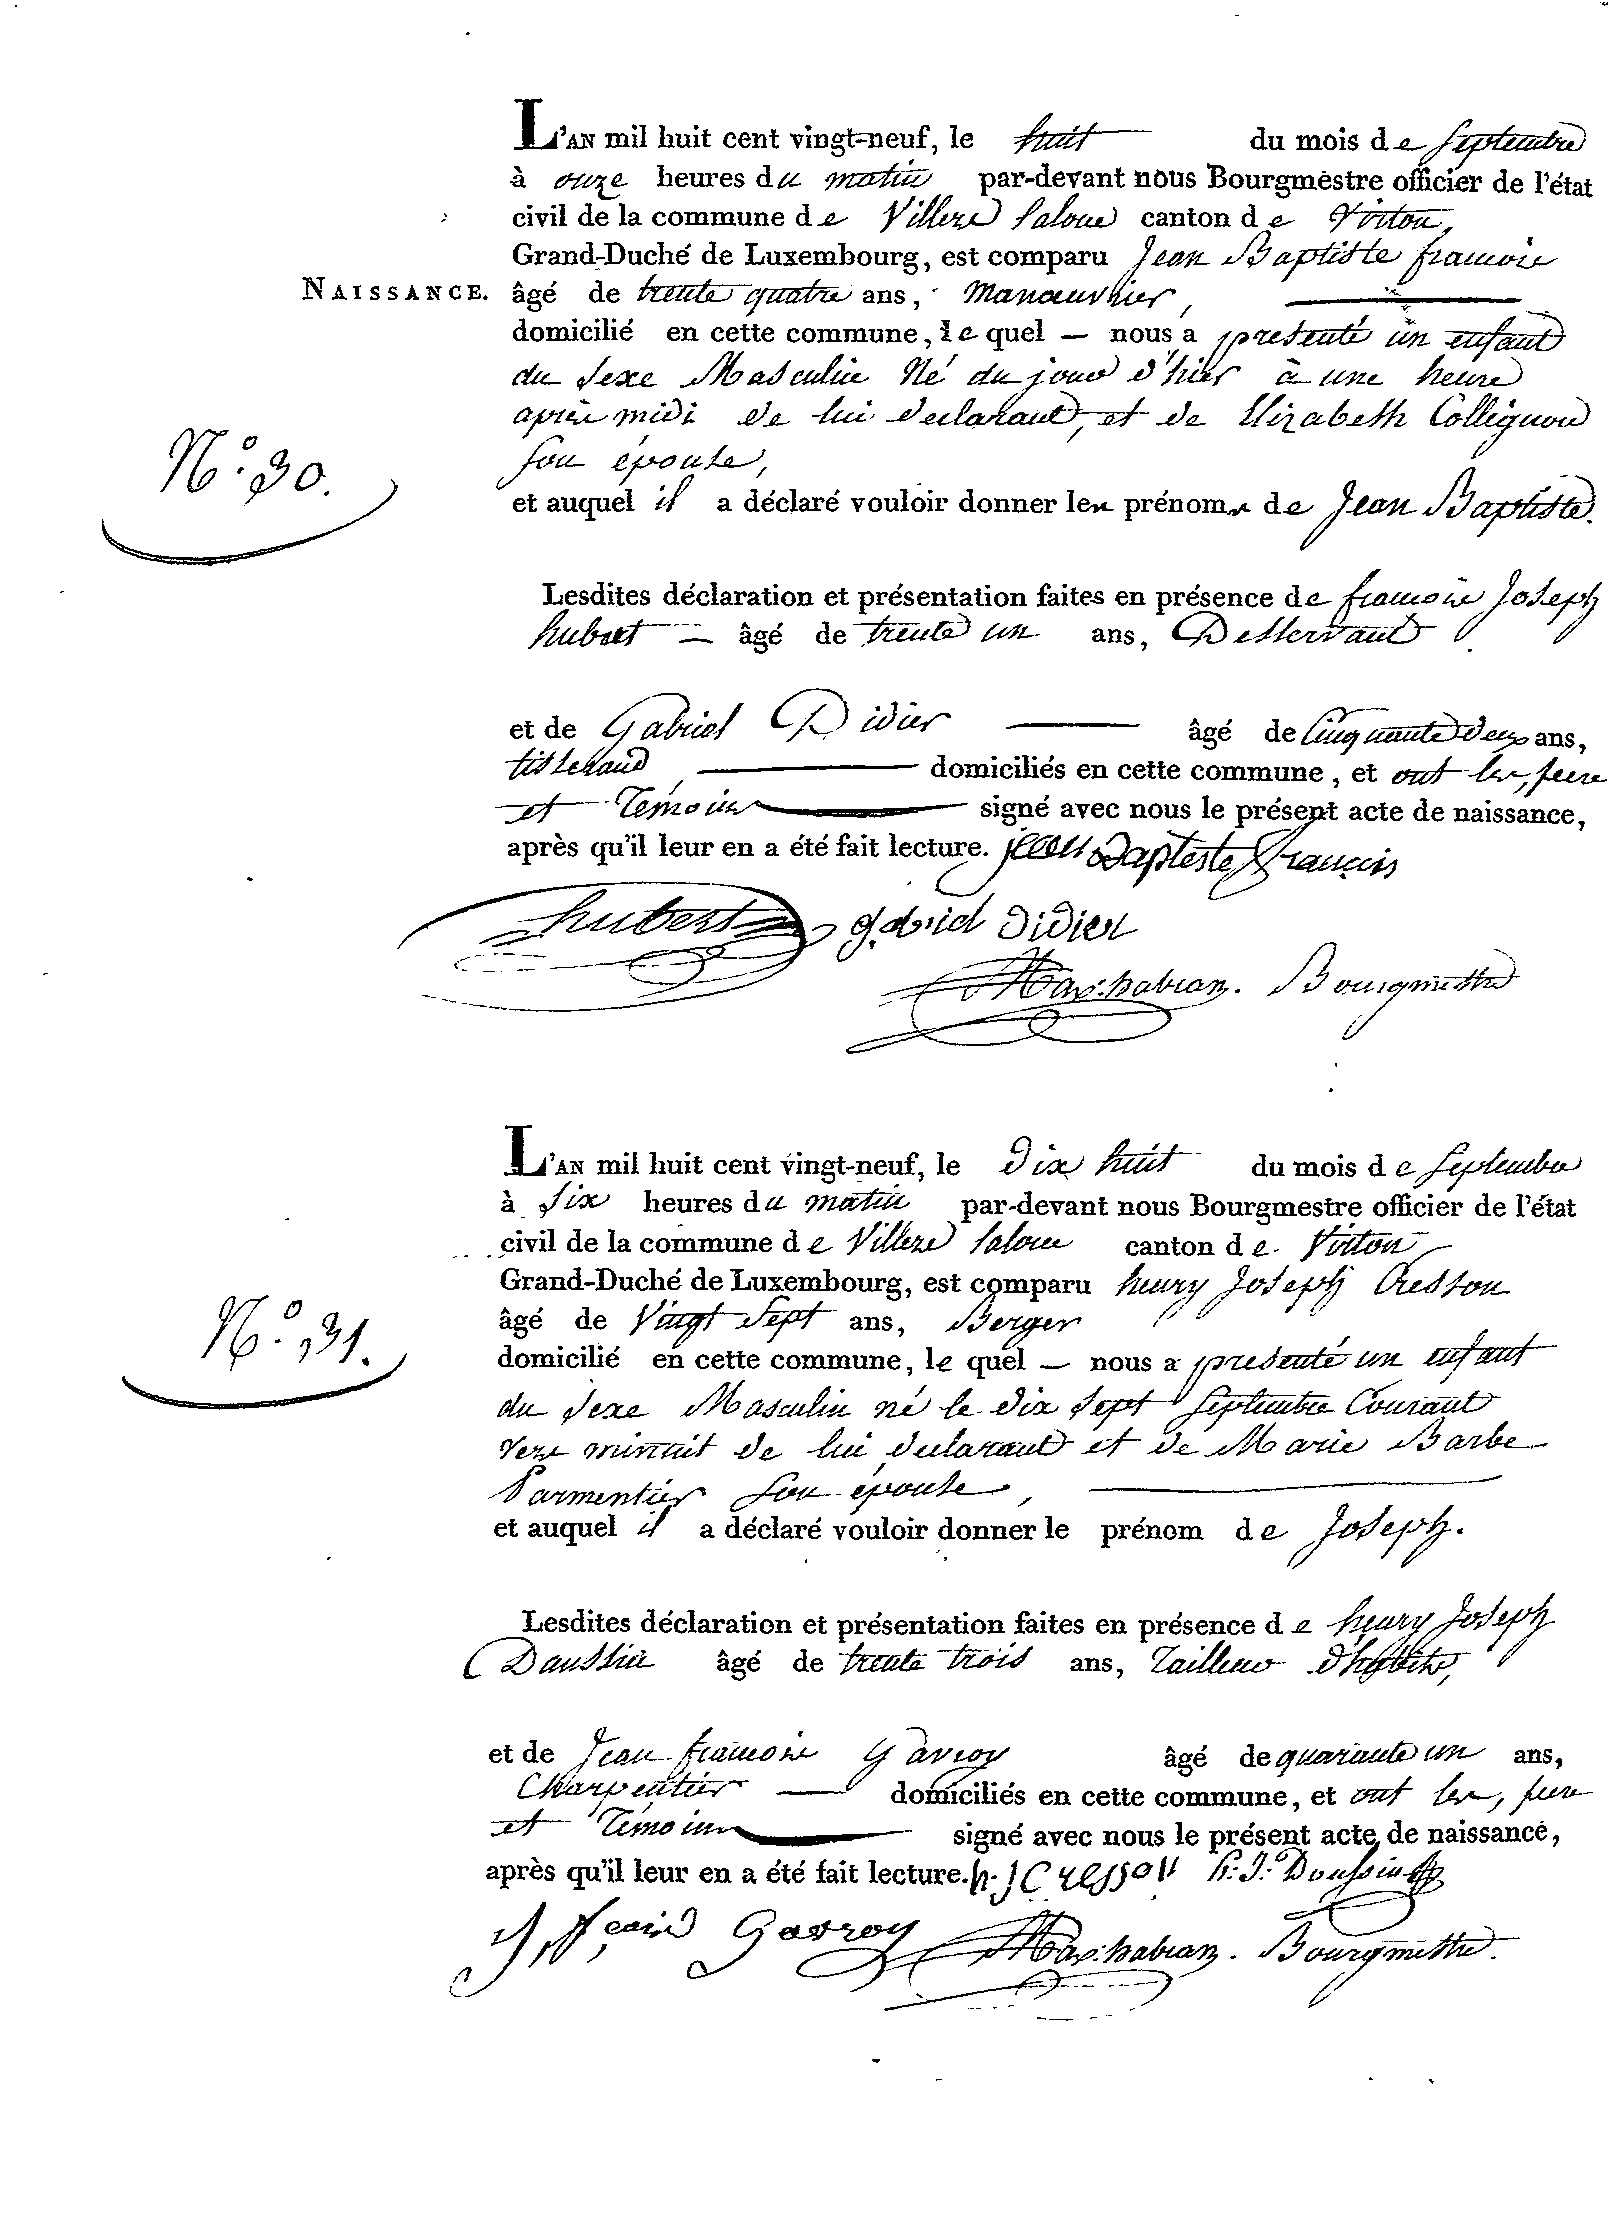 L'AN mil huit cent vingt-neuf, le huit du mois de Septembre
à onze heures du matin par-devant nous Bourgmestre officier de l'état
civil de la commune de Villers la loue canton de Virton,
Grand-Duché de Luxembourg, est comparu Jean Baptiste francois
NAISSANCE. âgé de trente quatre ans, Manoeuvrier,
domicilié en cette commune, le quel — nous a presenté un enfant
du Sexe Masculin Né du jour d'hier à une heure
après midi de lui declarant, et de Elizabeth Collignon
N.o 30. son épouse,
et auquel il a déclaré vouloir donner les prénoms de Jean Baptiste.
Lesdites déclaration et présentation faites en présence de francois Joseph
hubert — âgé de trente un ans, Desservant
et de Gabriel Didier — âgé de Cinquante deux ans,
tisserand — domiciliés en cette commune, et ont les, pere
et Témoins — signé avec nous le présent acte de naissance,
après qu'il leur en a été fait lecture. jean Bapteste François
hubert gabriel Didier
Bourgmestre
L'AN mil huit cent vingt-neuf, le Dix huit du mois de Septembre
à Six heures du matin par-devant nous Bourgmestre officier de l'état
civil de la commune de Villers la loue canton de Virton
Grand-Duché de Luxembourg, est comparu henry Joseph Cresson
N.o 31. âgé de Vingt Sept ans, Berger
domicilié en cette commune, le quel — nous a presenté un enfant
du Sexe Masculin né le dix Sept Septembre Courant
vers minuit de lui declarant et de Marie Barbe
Parmentier son épouse,
et auquel il a déclaré vouloir donner le prénom de Joseph.
Lesdites déclaration et présentation faites en présence de henry Joseph
Daussin âgé de trente trois ans, Tailleur d'habits,
et de Jean francois Gavroy âgé de quarante un ans,
Charpentier — domiciliés en cette commune, et ont les, pere
et Témoins — signé avec nous le présent acte de naissance,
après qu'il leur en a été fait lecture. h. J Cresson h. J. Doussin
Gavroy Bourgmestre.